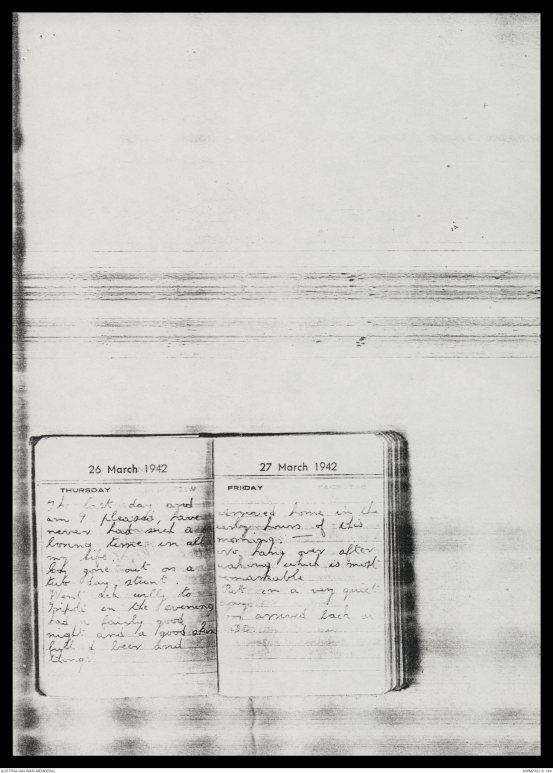 26 March 1942
THURSDAY
The last day and
am I pleased, have
never had such a
boring time in all
my life.
gone out on a
day stunt.
Went to
Tripoli in the evening
had a fairly good
night and a good
of beer and
things
27 March 1942
FRIDAY
Arrived home in the
early hours of this
morning. —
No hang over after
which is most
remarkable
Put in a very quiet
arrived back
AUSTRALIAN WAR MEMORIAL